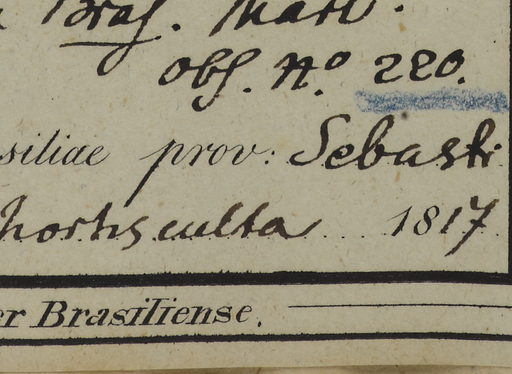 Bras. Mart.
Obs. N.º 220.
siliae prov: Sebasti
hortis culta 1817
er Brasiliense.